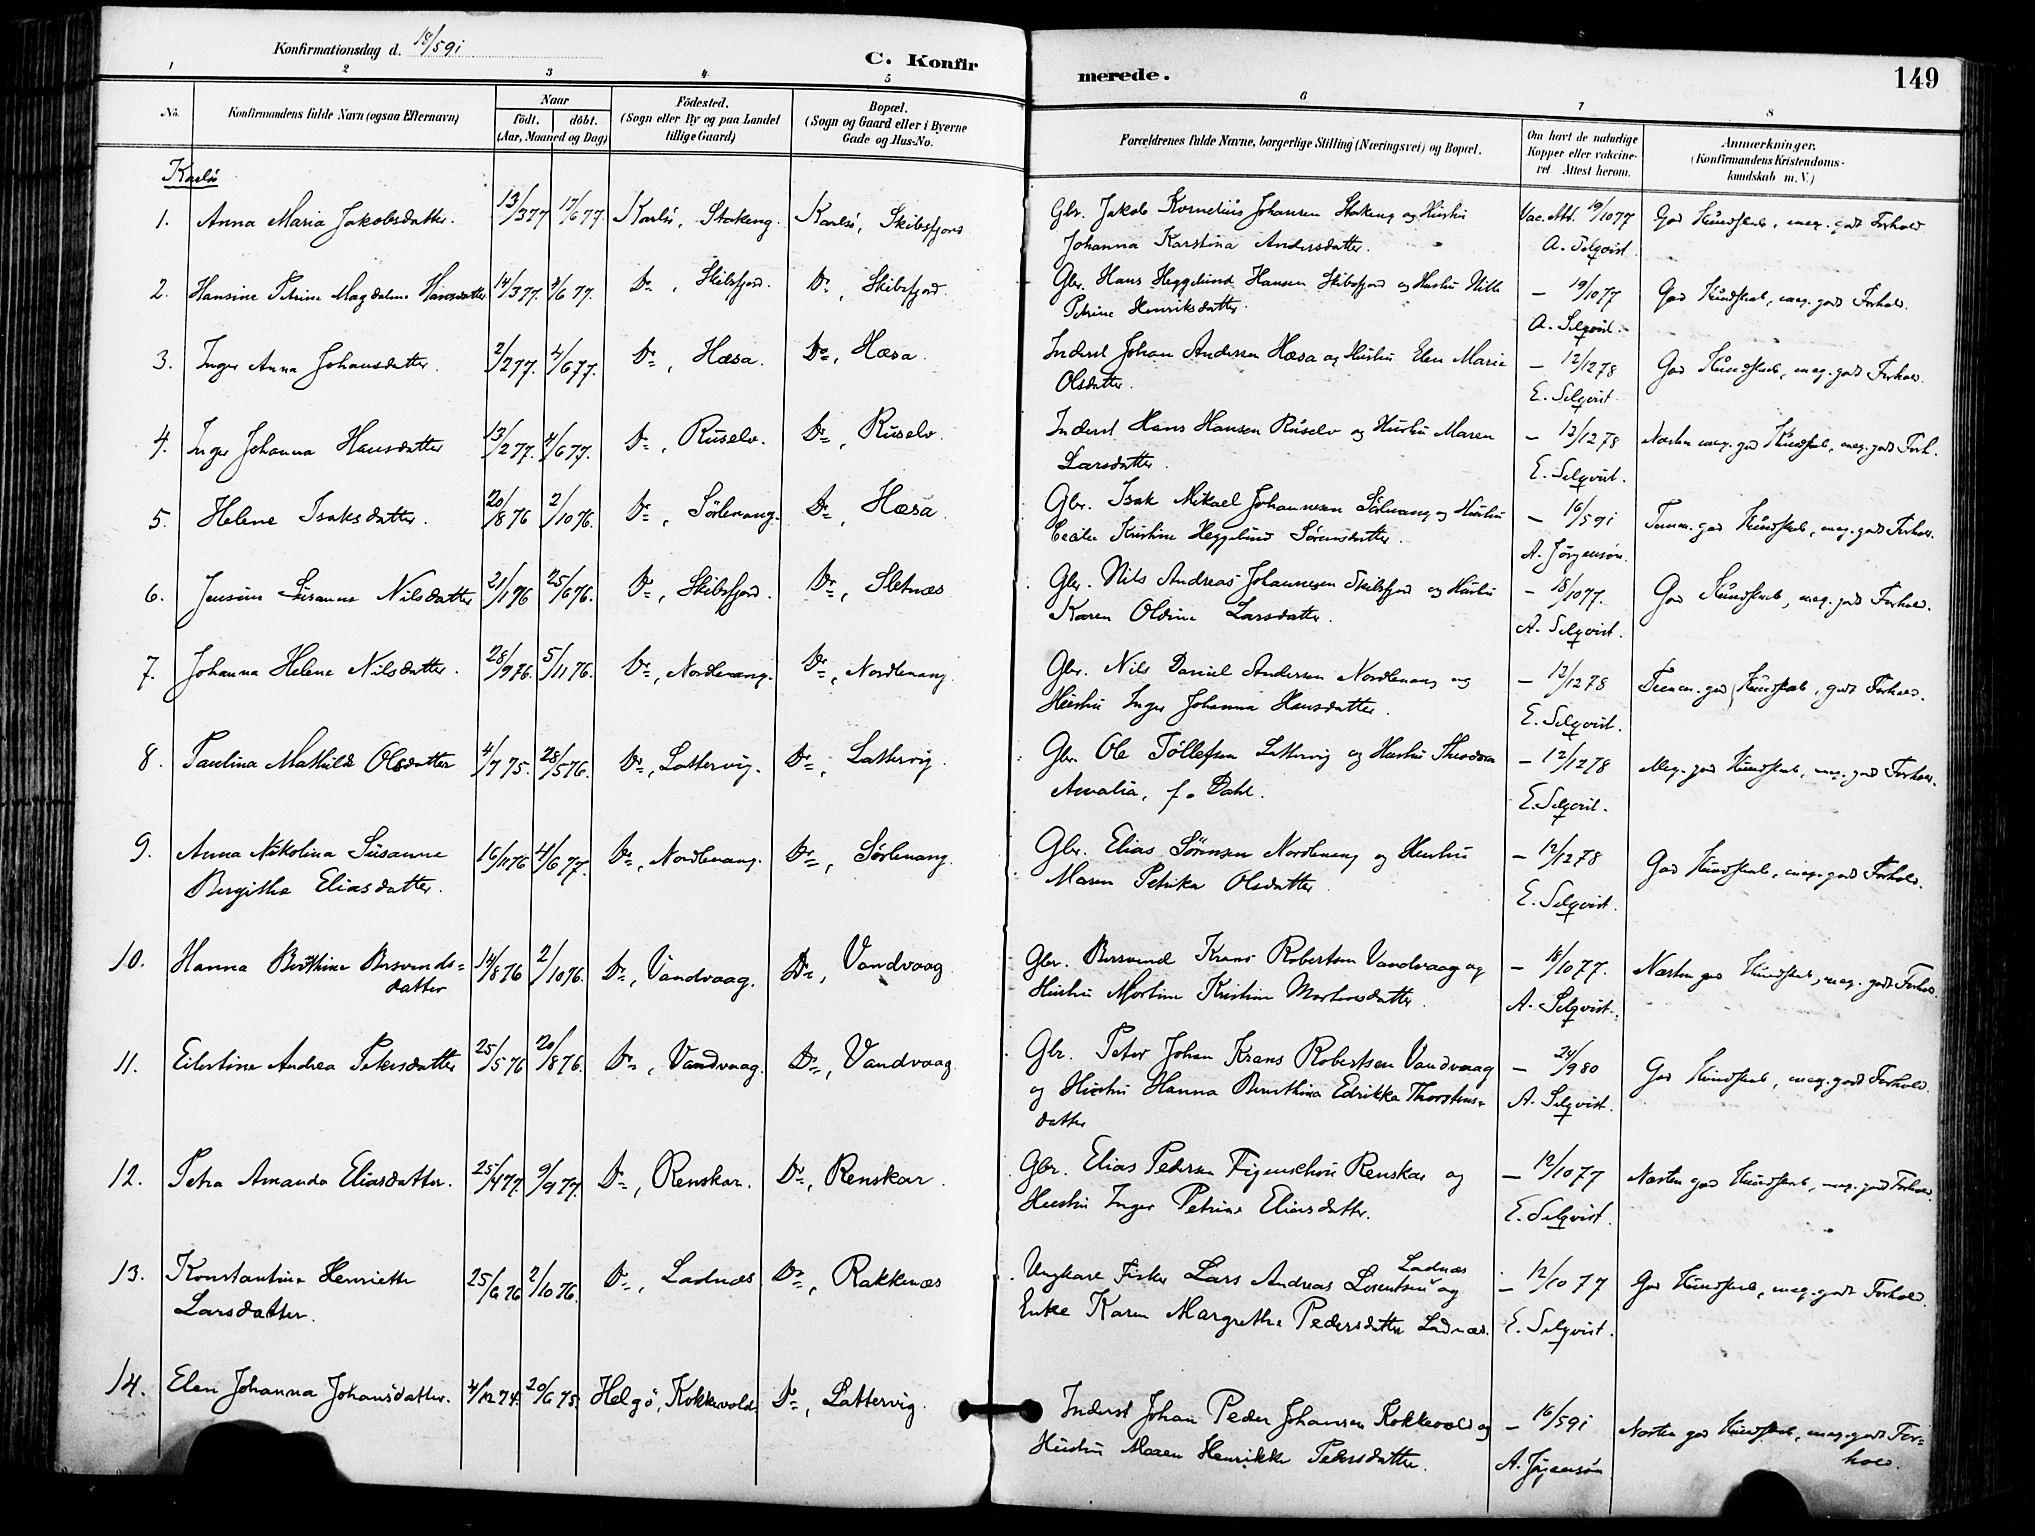 Konfirmationsdag d. 18/5 91
C. Konfirmerede.
149
1 2 3 4 5 6 7 8
No.
Konfirmandens fulde Navn (ogsaa Efternavn)
Naar
födt. döbt.
(Aar, Maaned og Dag)
Födested.
(Sogn eller By og paa Landet
tillige Gaard)
Bopæl.
(Sogn og Gaard eller i Byerne
Gade og Hus-No.
Forældrenes fulde Navne, borgerlige Stilling (Næringsvei) og Bopæl.
Om havt de naturlige
Kopper eller vakcine-
ret. Attest herom.
Anmærkninger.
(Konfirmandens Kristendoms-
kundskab m. V.)
Karlsö
1. Anna Maria Jakobsdatter. 13/3 77 17/6 77. Karlsö, Stakeng. Karlsö, Skibsfjord Gbr. Jakob Kornelius Johansen Stakeng og Hustru Vac. Att. 19/10 77 God Kundskab, meg. godt Forhold
Johanna Karstina Andersdatter. A. Selqvist
2. Hansine Petrine Magdalena Hansdatter 14/3 77. 4/6 77. Do, Skibsfjord. Do, Skibsfjord. Gbr. Hans Heggelund Hansen Skibsfjord og Hustru Nille – 19/10 77 God Kundskab, meg. godt Forhold.
Petrine Henriksdatter. A. Selqvist.
3. Inger Anna Johansdatter. 2/2 77. 4/6 77. Do, Hæsa. Do, Hæsa. Inderst Johan Andersen Hæsa og Hustru Elen Marie – 12/12 78 God Kundskab, meg. godt Forhold.
Olsdatter. E. Selqvist.
4. Inger Johanna Hansdatter 13/2 77. 4/6 77. Do, Ruselv. Do, Ruselv. Inderst Hans Hansen Ruselv og Hustru Maren – 12/12 78 Næsten meg. god Kundskab, meg. godt Forh.
Larsdatter. E. Selqvist.
5. Helene Isaksdatter. 20/8 76 2/10 76. Do, Sørlenang. Do, Hæsa Gbr. Isak Mikael Johannesen Sørlenang og Hustru – 16/5 91 Temm. god Kundskab, meg. godt Forhold.
Cecilie Kristine Heggelund Sørensdatter. A. Jørgensøn.
6. Jensine Susanna Nilsdatter 21/1 76 25/6 76. Do, Skibsfjord. Do, Sletnæs Gbr. Nils Andreas Johannesen Skibsfjord og Hustru – 18/10 77. God Kundskab, meg. godt Forhold.
Karen Oldine Larsdatter. A. Selqvist.
7. Johanna Helene Nilsdatter. 28/9 76. 5/11 76. Do, Nordlenang. Do, Nordlenang. Gbr. Nils Daniel Andersen Nordlenang og – 12/12 78 Temm. god Kundskab, godt Forhold.
Hustru Inger Johanna Hansdatter. E. Selqvist.
8. Paulina Mathilde Olsdatter 4/7 75. 28/5 76. Do, Lattervig. Do, Lattervig. Gbr. Ole Tøllefsen Lattervig og Hustru Theodora – 12/12 78 Meg. god Kundskab, meg. godt Forhold.
Amalia, f. Dahl. E. Selqvist.
9. Anna Nikolina Susanne 16/11 76 4/6 77. Do, Nordlenang. Do, Sørlenang. Gbr. Elias Sørensen Nordlenang og Hustru – 12/12 78 God Kundskab, meg. godt Forhold.
Bergitha Eliasdatter. Maren Petrika Olsdatter. E. Selqvist.
10. Hanna Berthine Bersvends= 14/8 76 2/10 76. Do, Vandvaag. Do, Vandvaag. Gbr. Bersvend Krans Robertsen Vandvaag og – 18/10 77. Næsten god Kundskab, meg. godt Forhold.
datter Hustru Mortine Kristine Mortensdatter. A. Selqvist.
11. Eilertine Andrea Petersdatter 25/5 76 20/8 76. Do, Vandvaag. Do, Vandvaag. Gbr. Peter Johan Krans Robertsen Vandvaag – 24/9 80 God Kundskab, meg. godt Forhold.
og Hustru Hanna Bernthina Edrikka Thorstens= A. Selqvist.
datter
12. Petra Amanda Eliasdatter. 25/4 77. 9/9 77. Do, Renskar. Do, Renskar. Gbr. Elias Pedersen Figenschou Renskar og – 12/10 77 Næsten god Kundskab, meg. godt Forhold.
Hustru Inger Petrine Eliasdatter. E. Selqvist.
13. Konstantina Henriette 25/6 76 2/10 76. Do, Ladnæs Do, Rakkenæs Ungkarl Fisker Lars Andreas Lorentsen Ladnæs og – 12/10 77 God Kundskab, meg. godt Forhold.
Larsdatter. Enke Karen Margrethe Pedersdatter Ladnæs. E. Selqvist.
14. Elen Johanna Johansdatter. 4/12 74. 20/6 75. Helgö, Kokkevold. Do, Lattervig. Inderst Johan Peder Johansen Kokkevold og – 16/5 91 Næsten god Kundskab, meg. godt For=
Hustru Maren Henrikke Petersdatter. A. Jørgensøn hold.